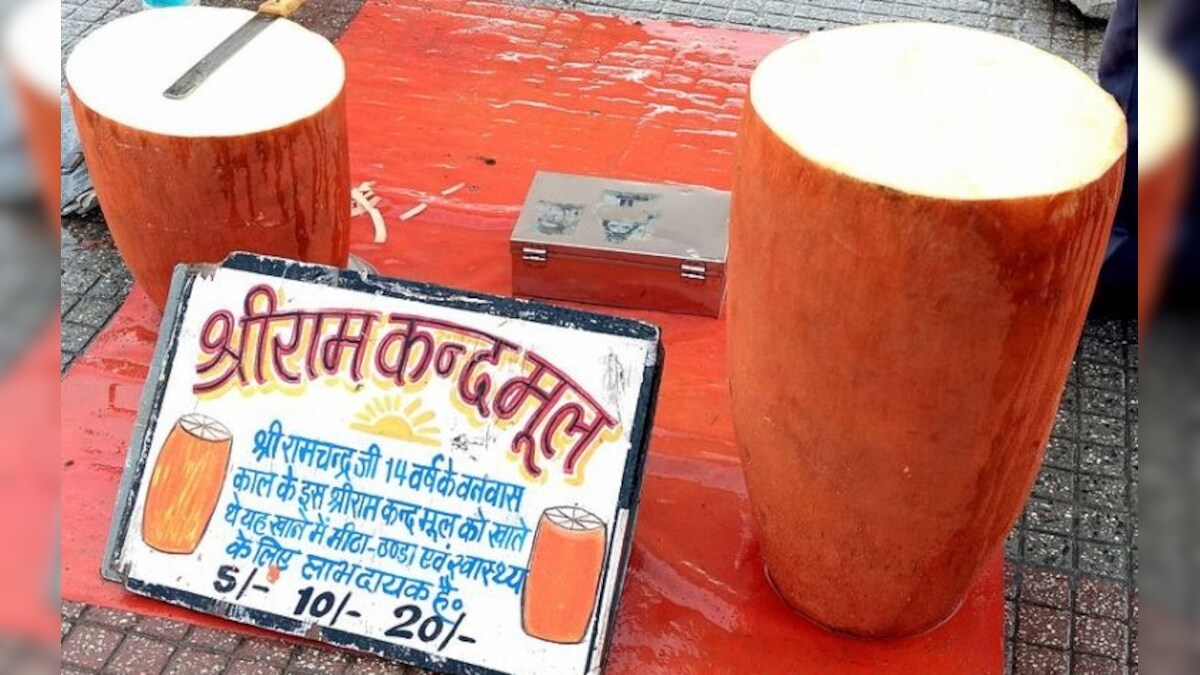 श्रीराम कन्दमूल
श्री रामचन्द्र जी 14 वर्ष के वनवास
काल के इस श्रीराम कन्द मूल को खाते
थे यह खाने में मीठा-ठण्डा एवं स्वास्थ्य
के लिए लाभदायक है॰
5/- 10/- 20/-